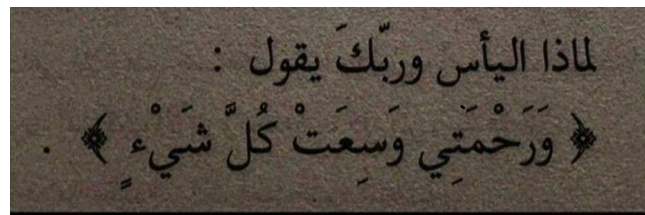 لماذا اليأس وربّكَ يقول :
﴿ وَرَحْمَتِي وَسِعَتْ كُلَّ شَيْءٍ ﴾ .